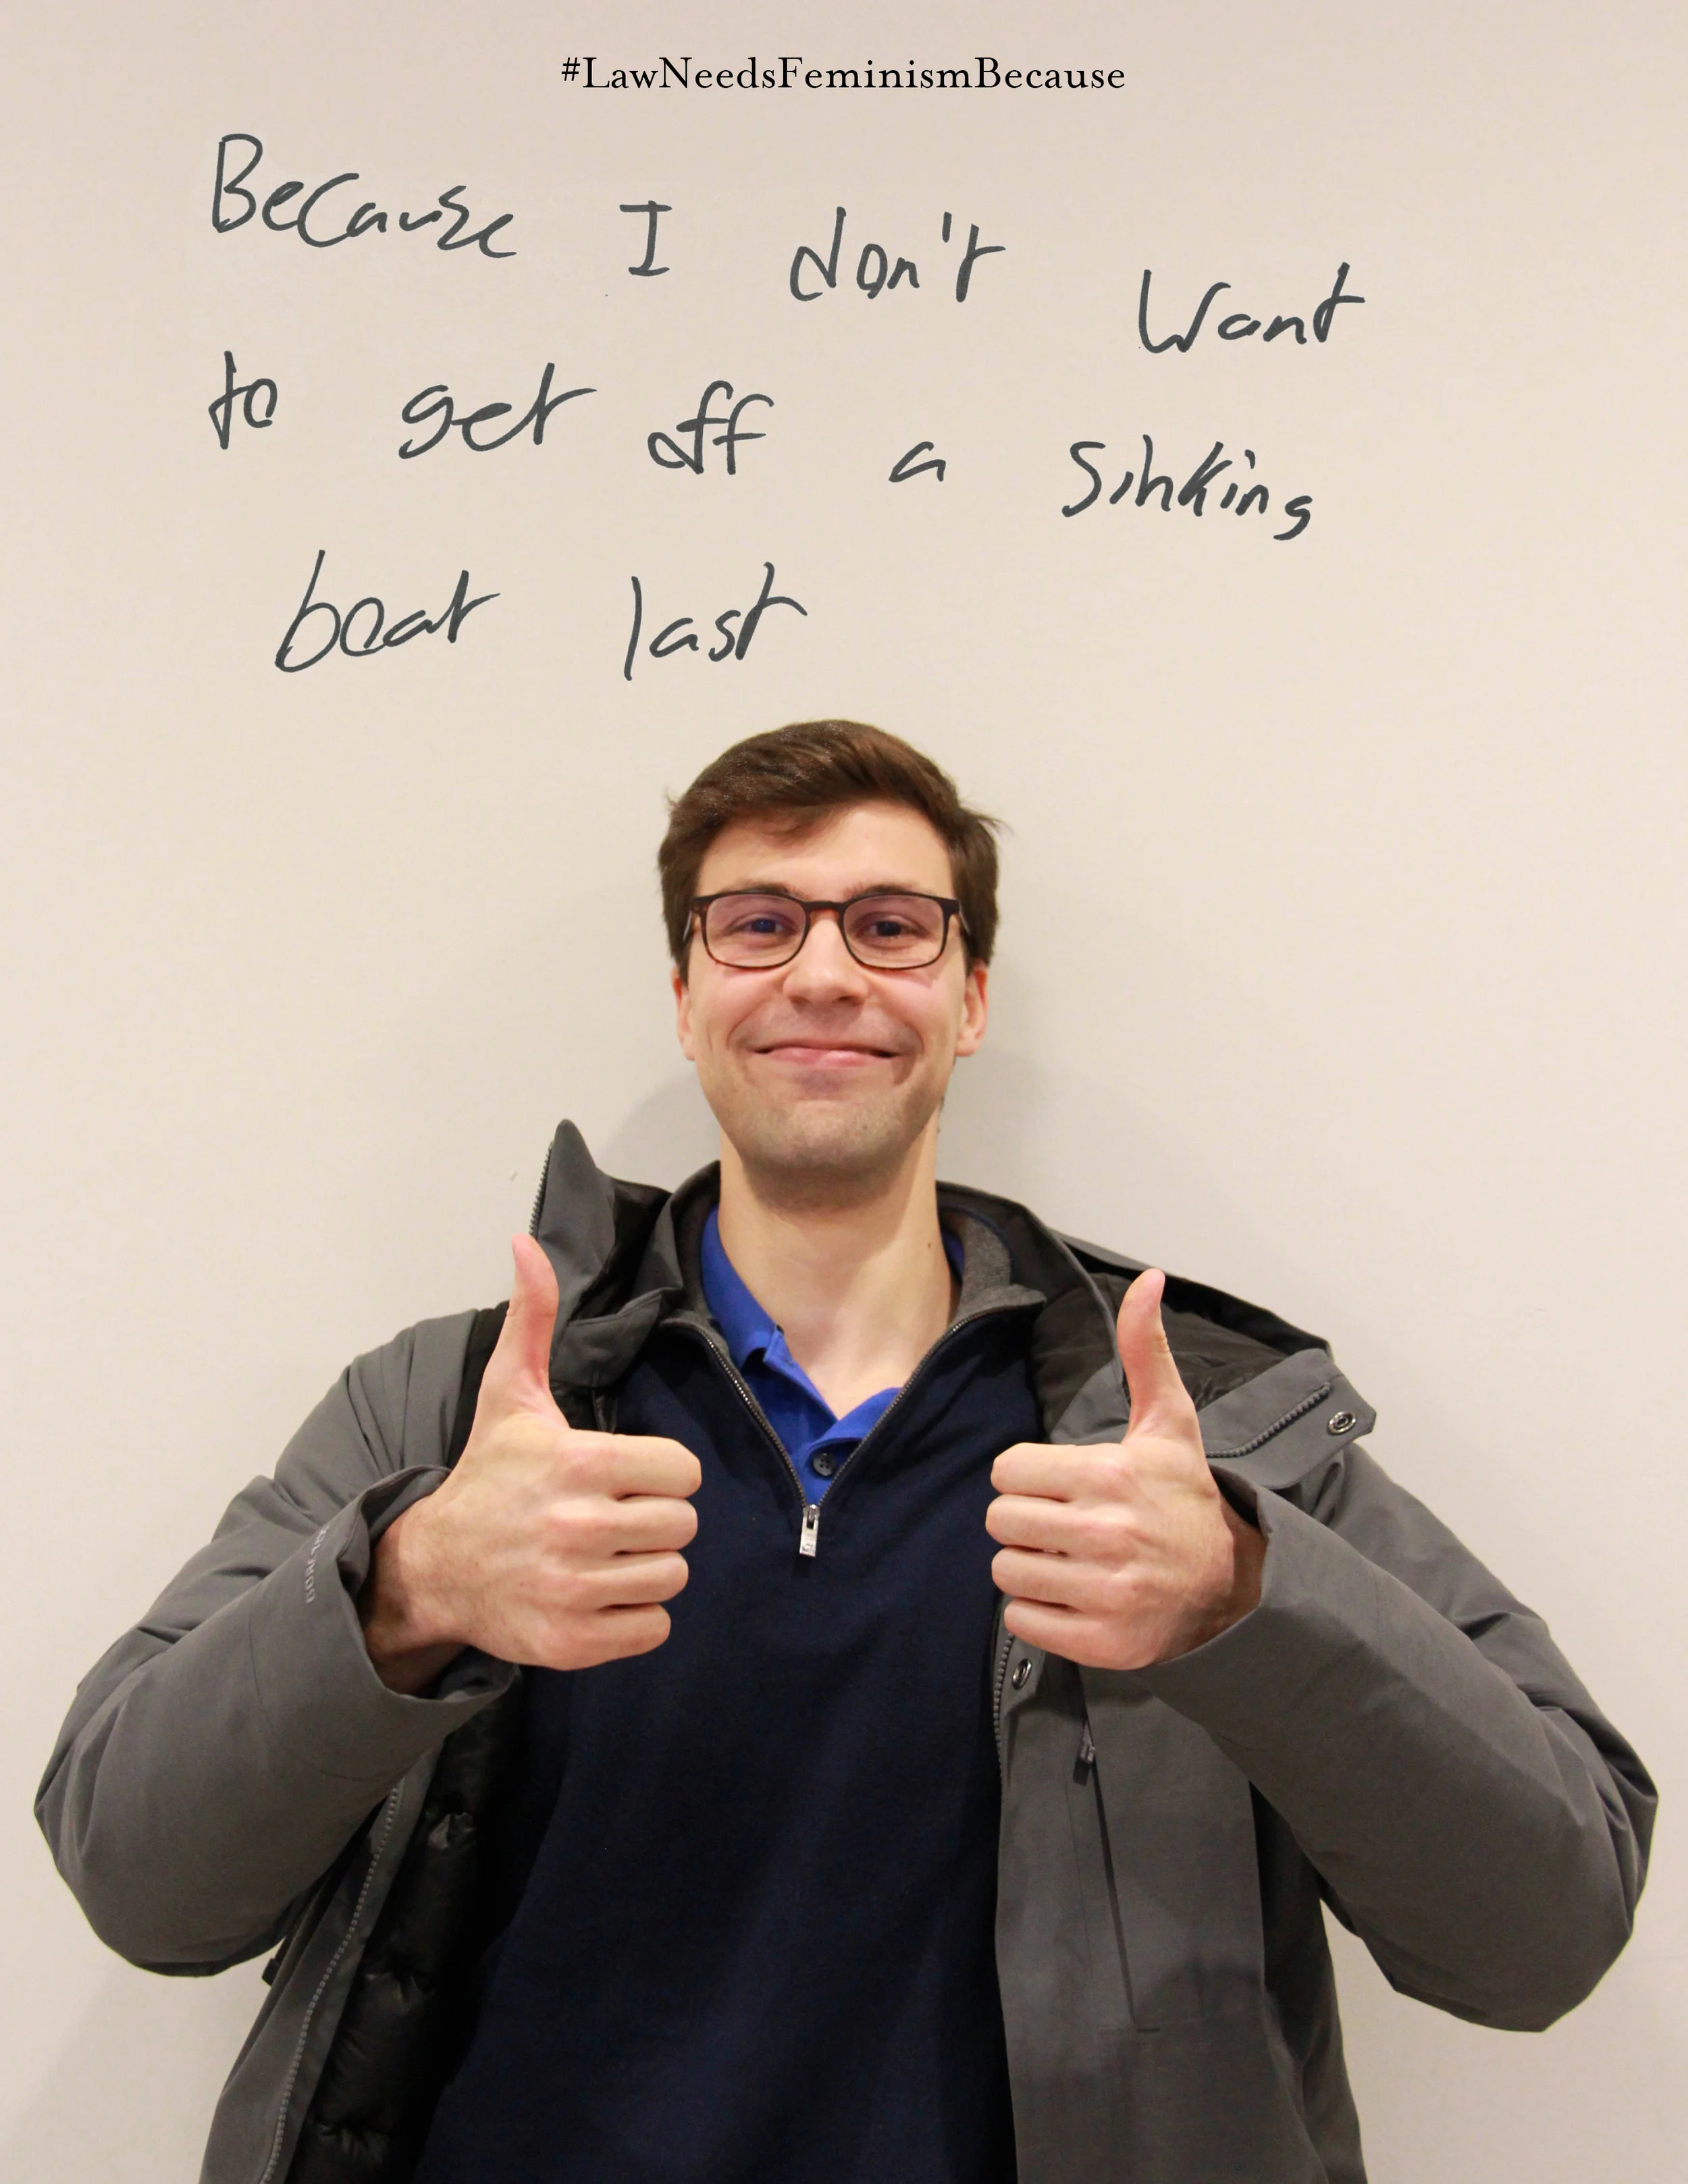 #LawNeedsFeminismBecause
Because I don't want
to get off a sinking
boat last